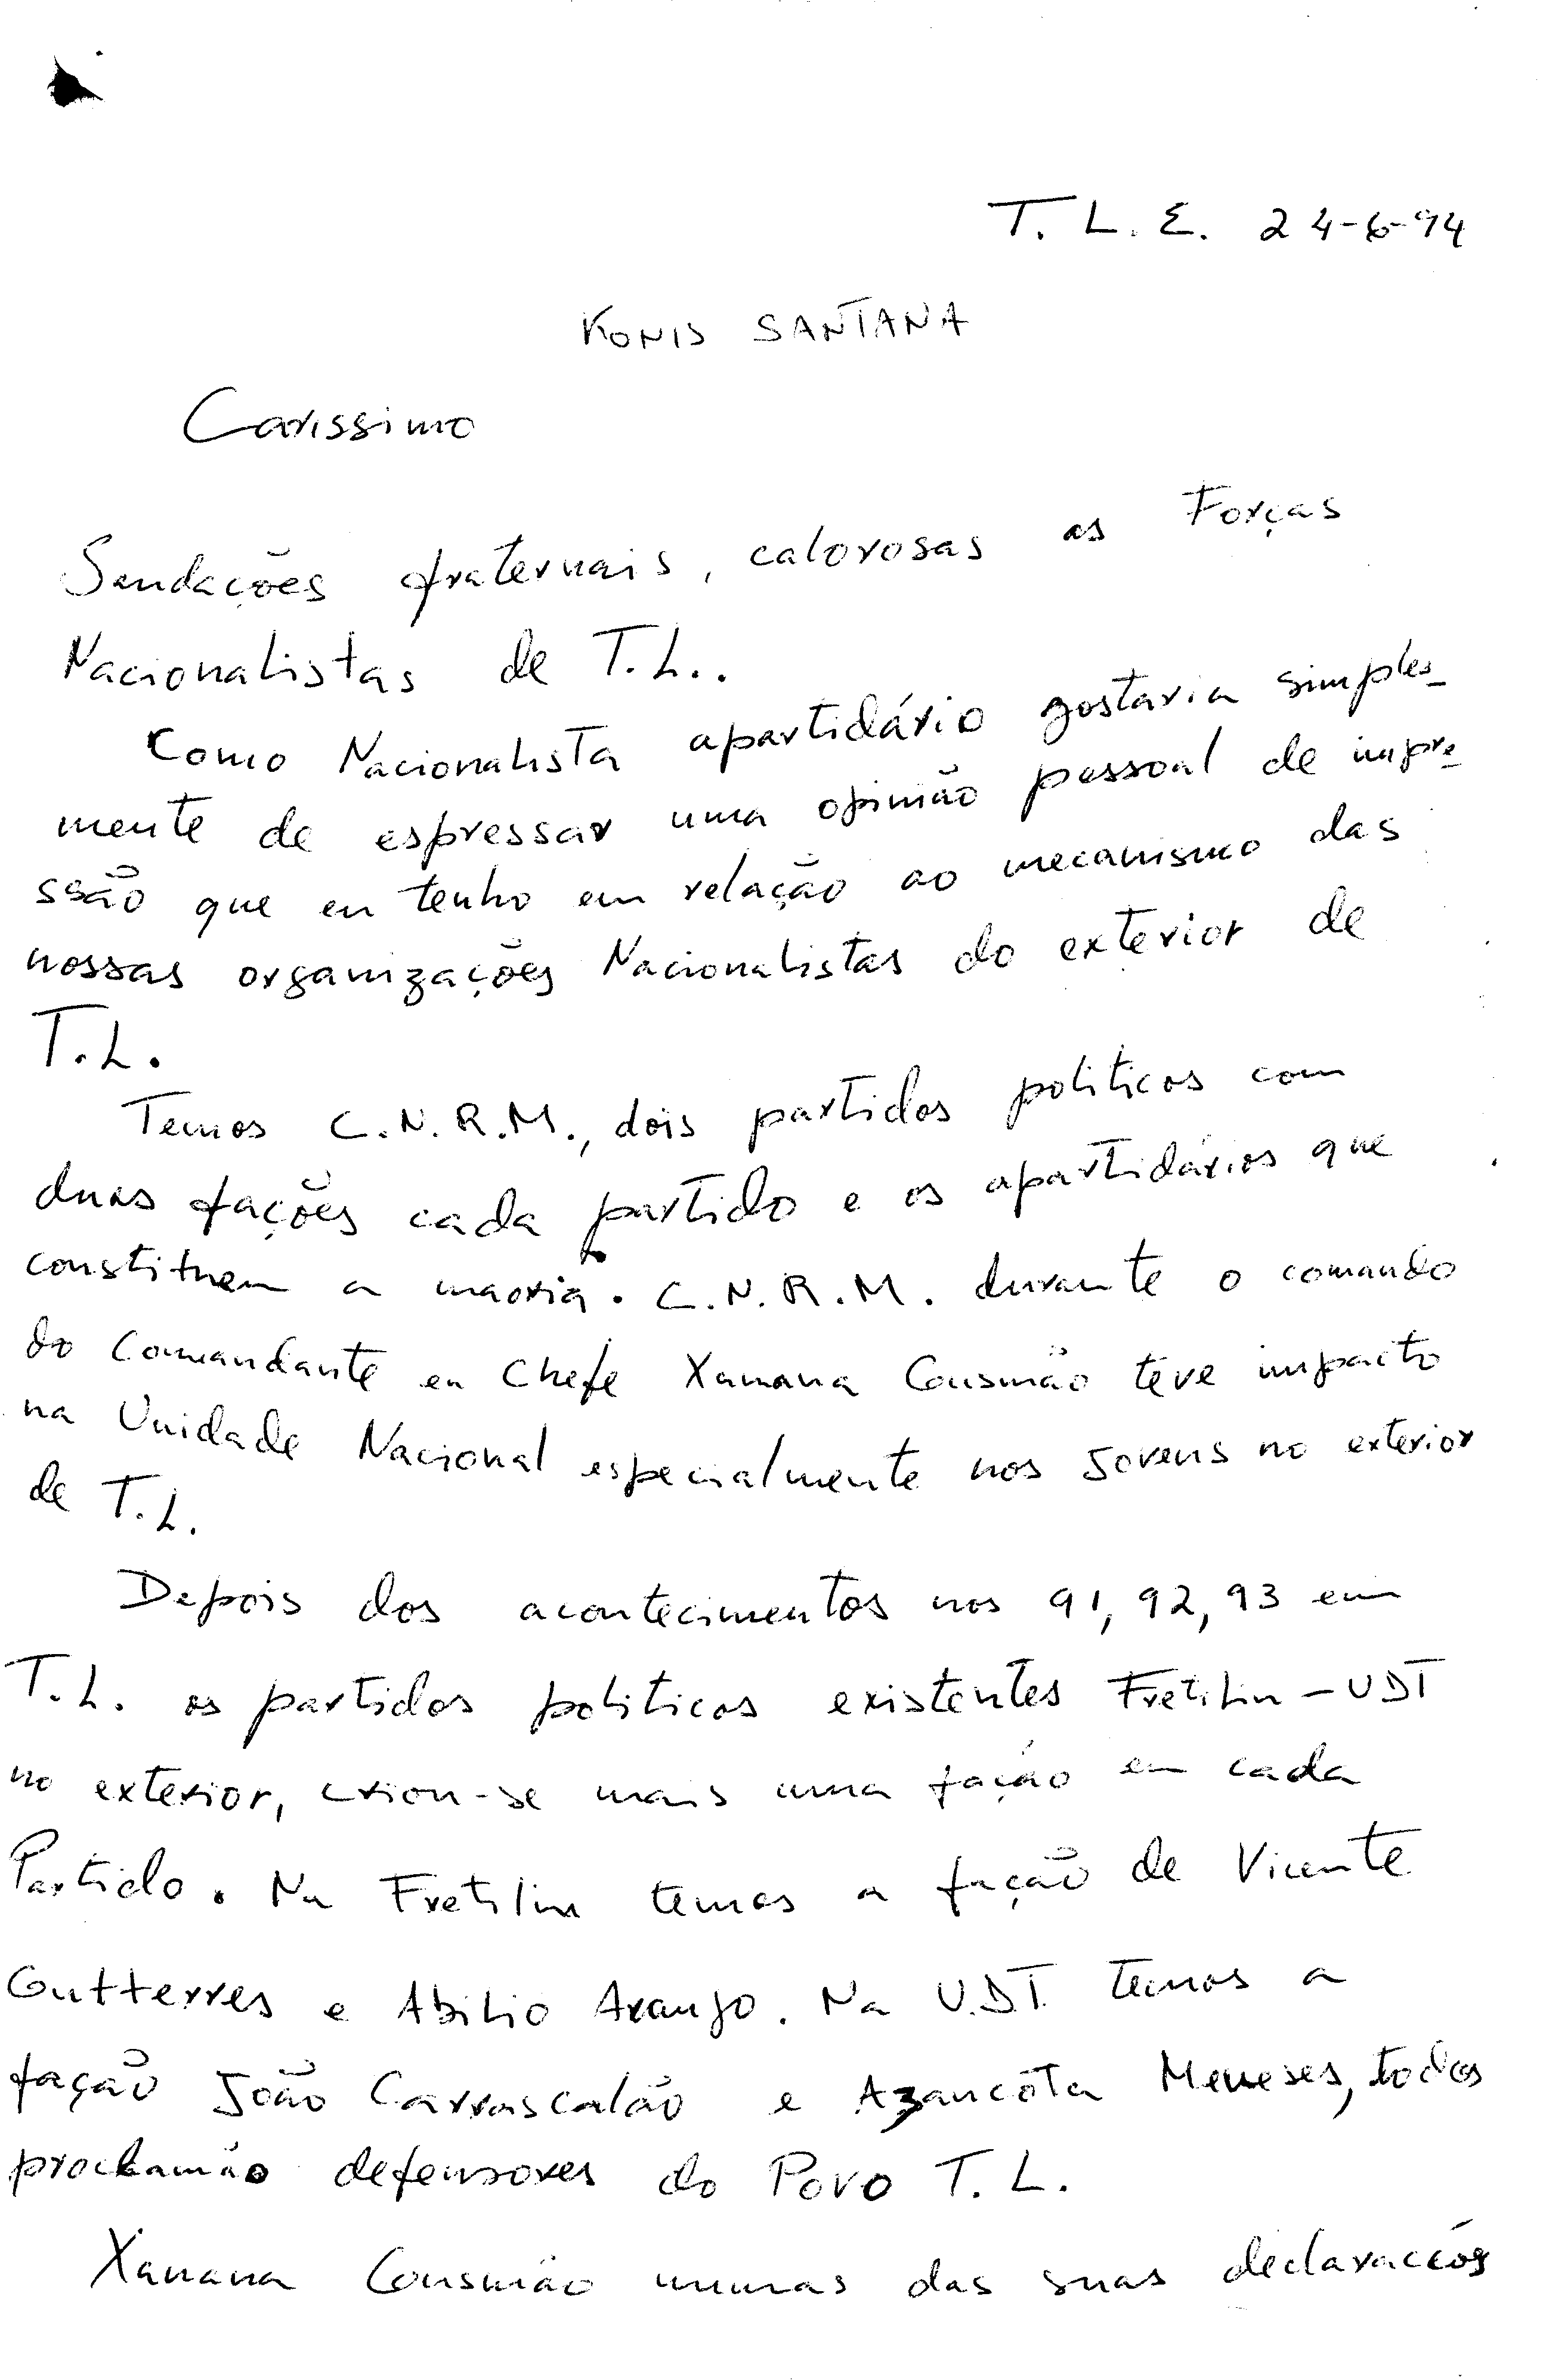 T. L. E. 24-6-94
KONIS SANTANA
Carissimo
Saudações fraternais, calorosas as Forças
Nacionalistas de T.L..
Como Nacionalista apartidário gostaria simples_
mente de espressar uma opinião pessoal de impre_
ssão que eu tenho em relação ao mecanismo das
nossas organizações Nacionalistas do exterior de
T.L.
Temos C.N.R.M., dois partidos politicos com
duas fações cada partido e os apartidários que
constituem a maoria. C.N.R.M. durante o comando
do Comandante em Chefe Xanana Gousmão teve impacto
na Unidade Nacional especialmente nos Jovens no exterior
de T.L.
Depois dos acontecimentos nos 91, 92, 93 em
T.L. os partidos politicos existentes Fretilin - UDT
no exterior, criou-se mais uma fação em cada
Partido. Na Fretilin temos a fação de Vicente
Gutterres e Abilio Araujo. Na U.D.T. temos a
fação João Carrascalão e Azancota Meneses, todos
proclamão defensores do Povo T. L.
Xanana Gousmão numas das suas declaracões